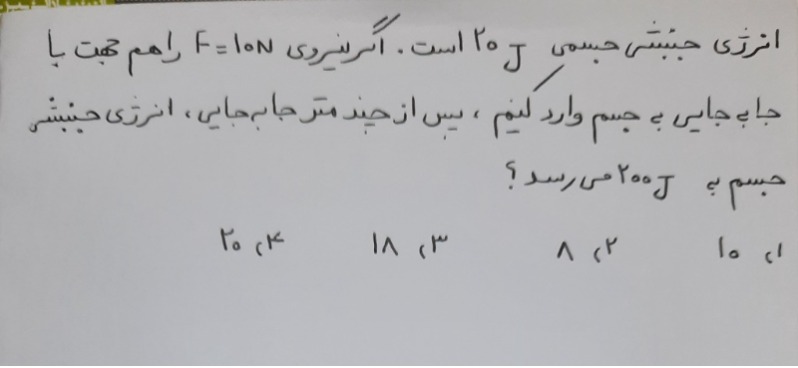 انرژی جنبشی جسمی ۲۰J است. اگر نیروی F=۱۰N را هم جهت با
جابه جایی به جسم وارد کنیم، پس از چند متر جابه جایی، انرژی جنبشی
جسم به ۲۰۰J می رسد؟
۱) ۱۰ ۲) ۸ ۳) ۱۸ ۴) ۲۰